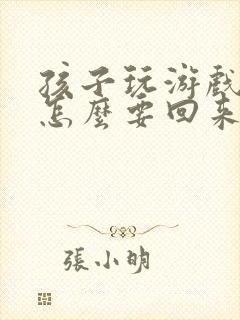 孩子玩游戲
怎麼要回來
張小明